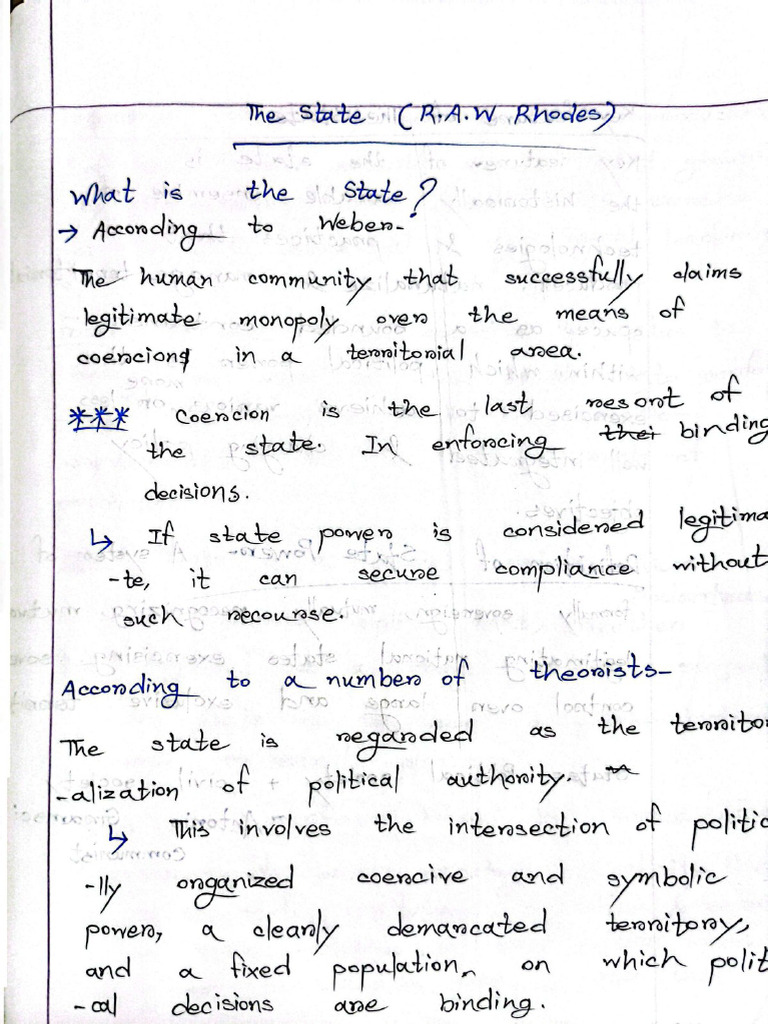 The State (R.A.W Rhodes)
What is the State?
→ According to Weber-
The human community that successfully claims
legitimate monopoly over the means of
coercion in a territorial area.
*** Coercion is the last resort of
the state. In enforcing binding
decisions.
↳ If state power is considered legitima
-te, it can secure compliance without
such recourse.
According to a number of theorists-
The state is regarded as the territor
-alization of political authority.
↳ This involves the intersection of politic
-lly organized coercive and symbolic
power, a clearly demarcated territory,
and a fixed population, on which polit
-cal decisions are binding.